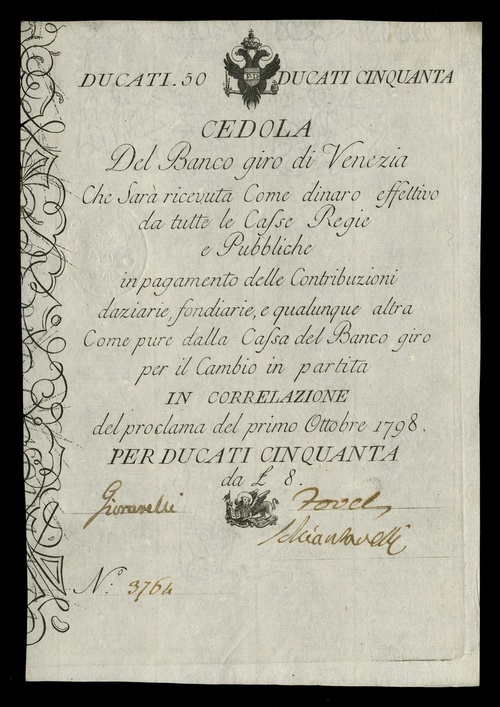 DUCATI. 50 DUCATI CINQUANTA
CEDOLA
Del Banco giro di Venezia
Che Sarà ricevuta Come dinaro effettivo
da tutte le Casse Regie
e Pubbliche
in pagamento delle Contribuzioni
daziarie, fondiarie, e qualunque altra
Come pure dalla Cassa del Banco giro
per il Cambio in partita
IN CORRELAZIONE
del proclama del primo Ottobre 1798.
PER DUCATI CINQUANTA
da £ 8.
N.º 3764